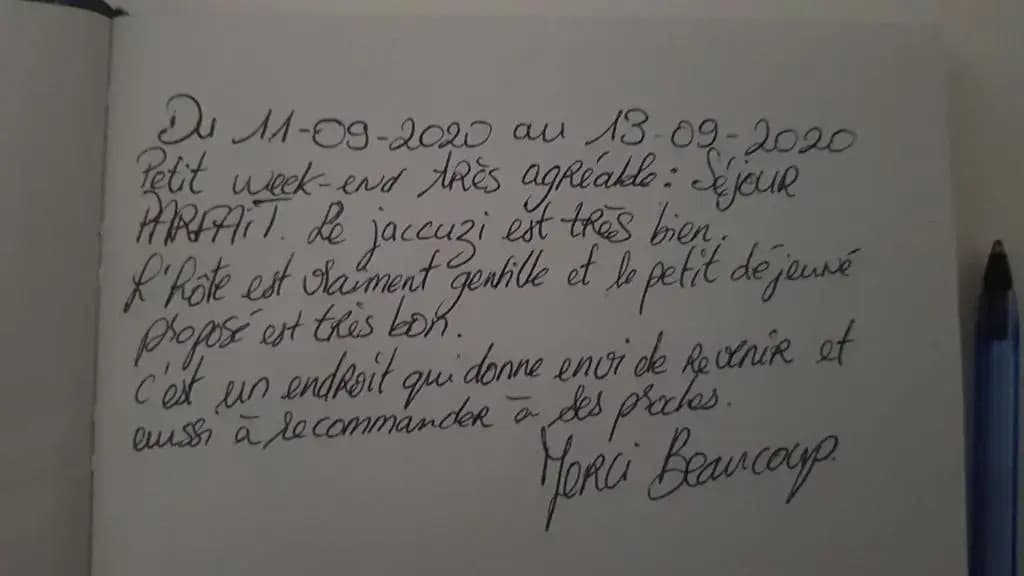 Du 11-09-2020 au 13-09-2020
Petit week-end très agréable : Séjour
PARFAIT. Le jaccuzi est très bien.
L'hôte est vraiment gentille et le petit déjeuné
proposé est très bon.
C'est un endroit qui donne envi de revenir et
aussi à recommander à ses proches.
Merci Beaucoup.